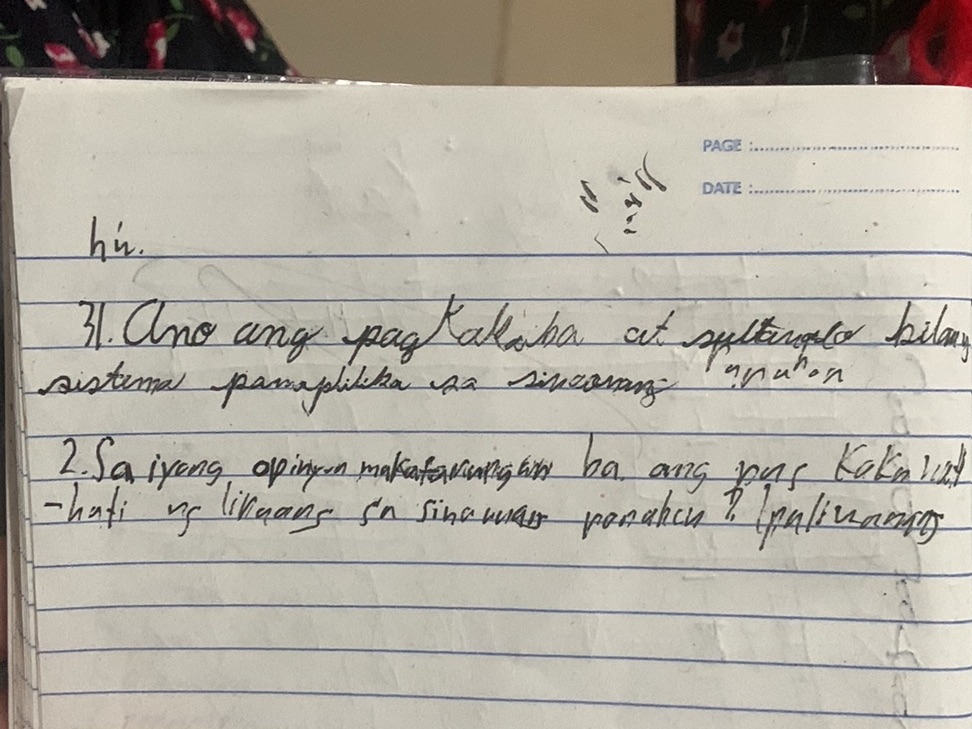 PAGE :
DATE :
hu.
31. Ano ang pagkakaiba at sultanato bilang
sistema pamaplilika sa sinaonang panahon
2. Sa iyong opinyon makatarungan ba ang pag kakahati
-hati ng lipunang sa sinaunang panahon? Ipaliwanag